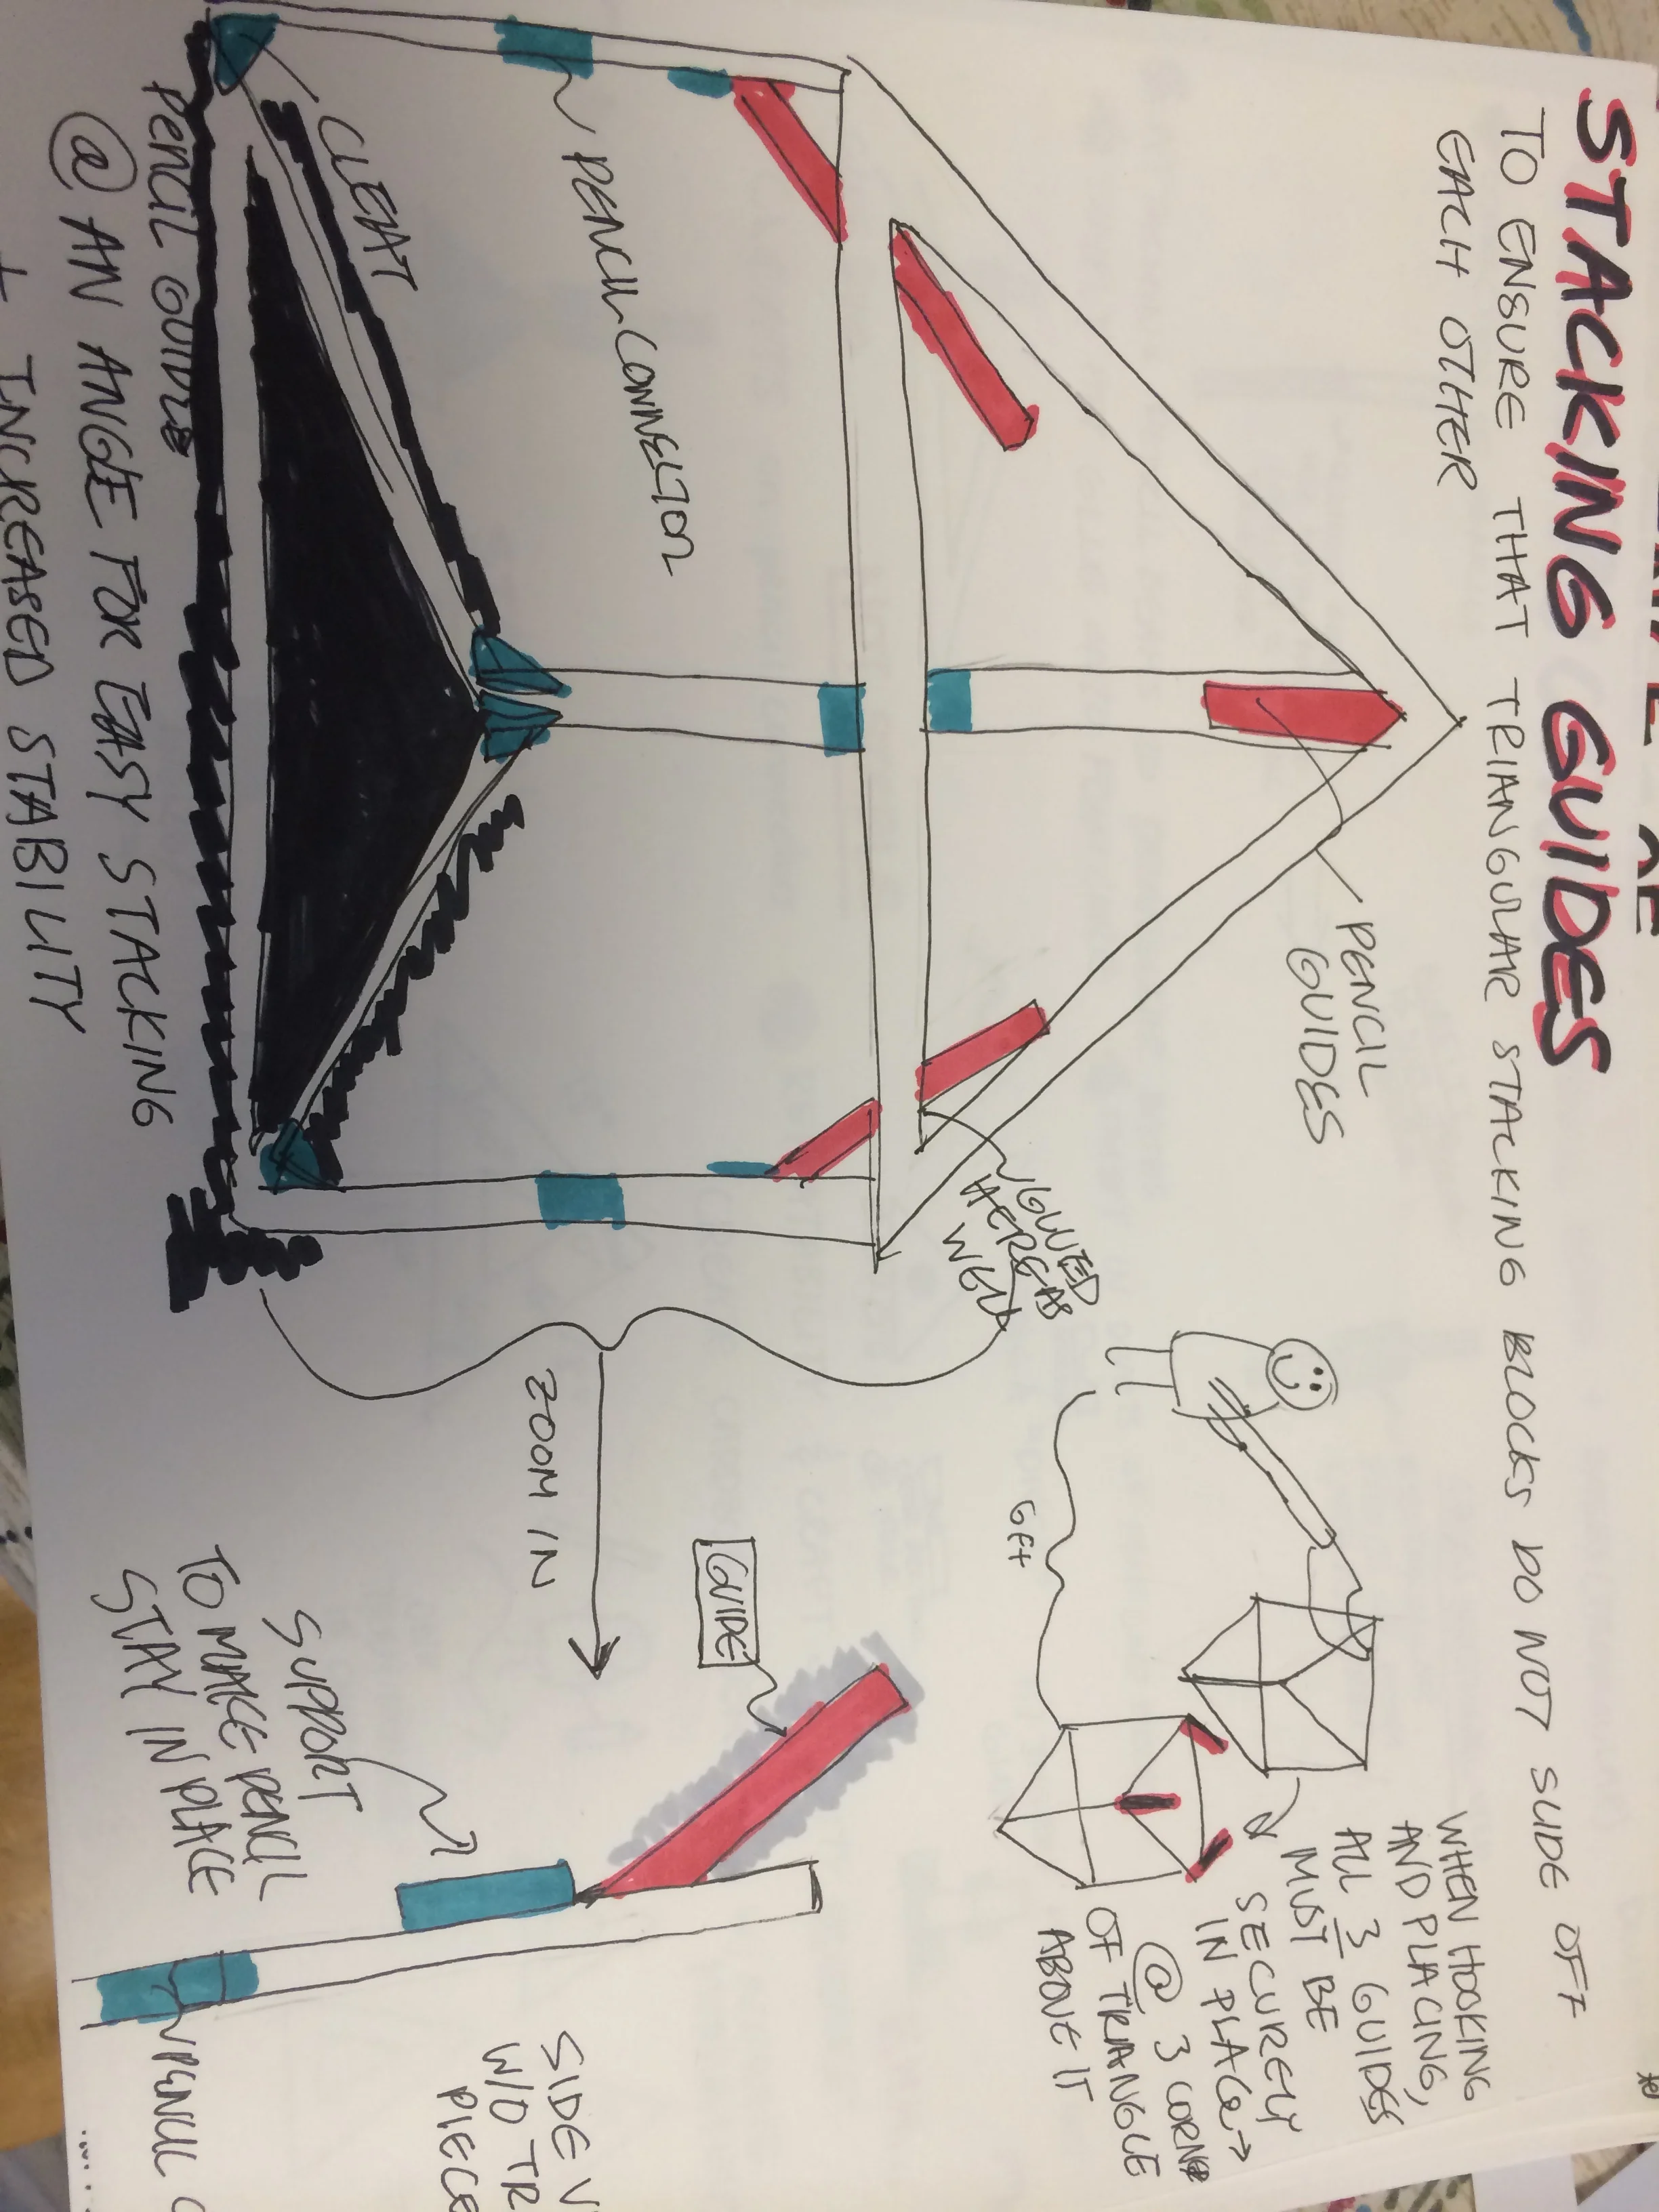 STACKING GUIDES
TO ENSURE THAT TRIANGULAR STACKING BLOCKS DO NOT SLIDE OFF
EACH OTHER
PENCIL
GUIDES
GLUED
HERE AS
WELL
PENCIL CONNECTOR
CLEAT
PENCIL GUIDES
@ AN ANGLE FOR EASY STACKING
+ INCREASED STABILITY
6ft
WHEN HOOKING
AND PLACING,
ALL 3 GUIDES
MUST BE
SECURELY
IN PLACE →
@ 3 CORNER
OF TRIANGLE
ABOVE IT
ZOOM IN
GUIDE
SUPPORT
TO MAKE PENCIL
STAY IN PLACE
PENCIL C
SIDE V
W/O TR
PIECE